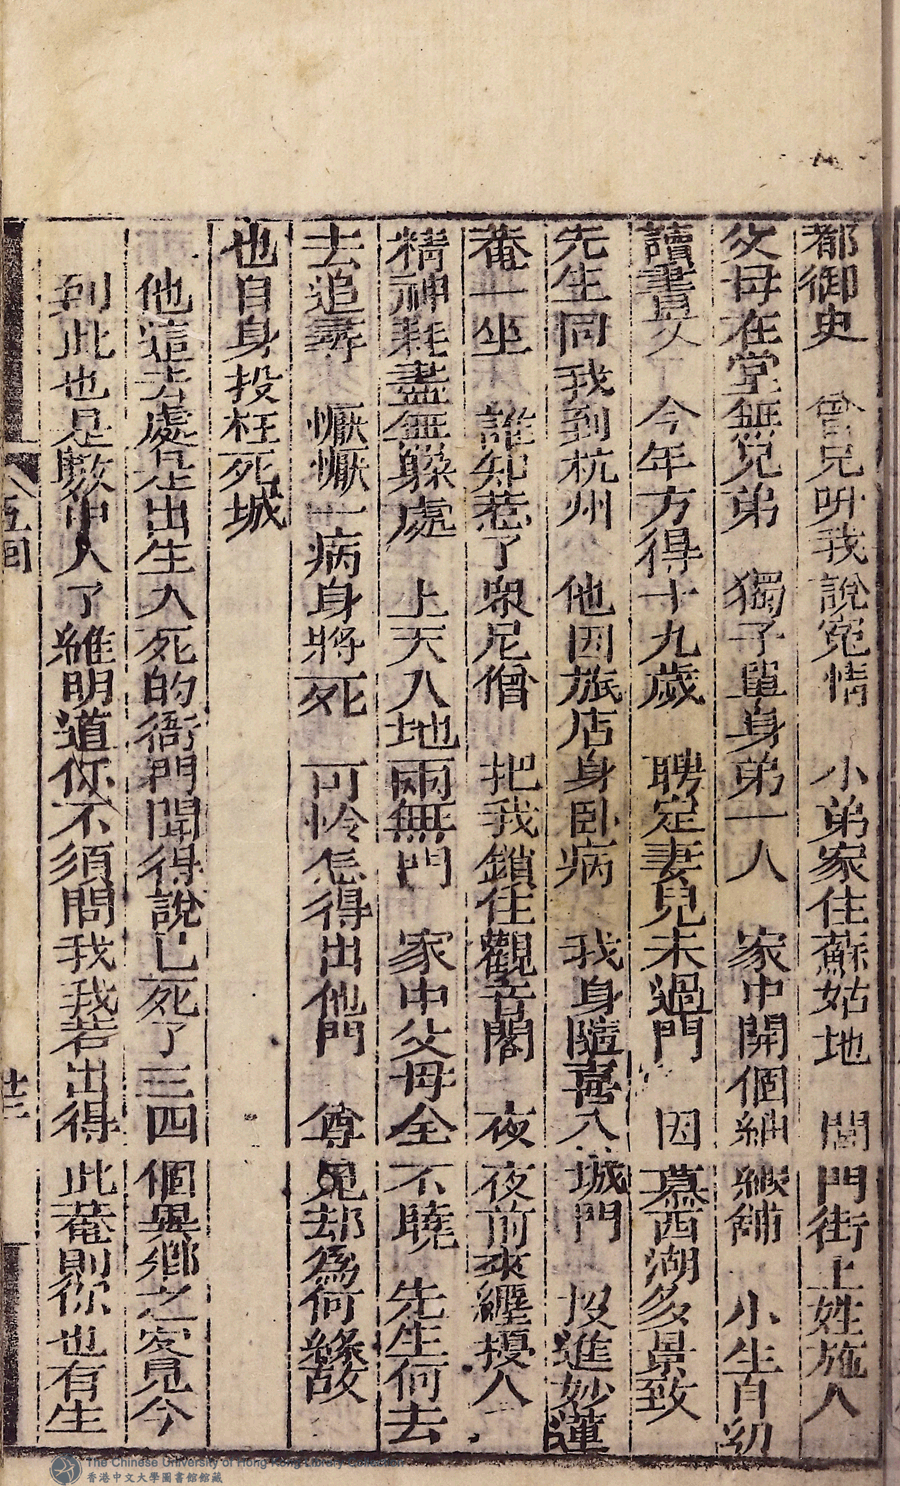 都御史　曾兄听我說冤情　小弟家住蘇姑地　閶門街上姓施人
父母在堂無兄弟　獨子單身弟一人　家中開個紬緞鋪　小生自幼
讀書　今年方得十九歲　聘定妻兒未過門　因慕西湖多景致
先生同我到杭州　他因旅店身卧病　我身隨喜入城門　投進妙蓮
菴一坐　誰知惹了衆尼僧　把我鎖住觀音閣　夜夜前來纒擾人
精神耗盡無躱處　上天入地兩無門　家中父母全不曉　先生何去
去追尋　懨懨一病身將死　可怜怎得出他門　尊兄却為何緣故
也自身投枉死城
他這去處是出生入死的衙門聞得說已死了三四個異鄉之客見今
到此也是數中人了維明道你不須問我我若出得此菴則你也有生
五回
廿三
The Chinese University of Hong Kong Library Collection
香港中文大學圖書館館藏